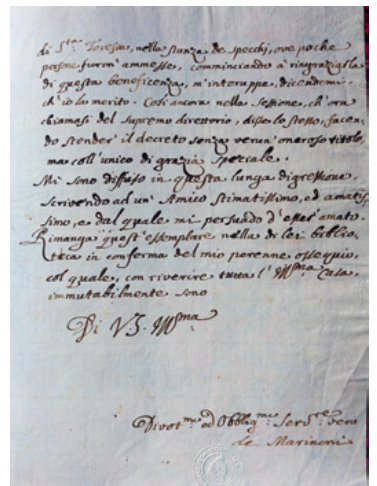 di S.ta Teresa, nella stanza de specchi, ove poche
persone furon' ammesse, comminciando à ringraziarla
di questa beneficenza, m'interuppe, dicendomi
ch'io lo merito. Così ancora nella Sessione, ch'ora
chiamasi del Supremo direttorio, disse lo stesso, facen-
do stender' il decreto senza verun' oneroso titolo,
ma coll'unico di grazia speziale.
Mi sono diffuso in questa lunga digressione,
scrivendo ad un' Amico stimatissimo, ed amatis-
simo, e dal quale mi persuado d'esser' amato.
Rimanga quest'essemplare nella di lei biblio-
teca in conferma del mio perenne ossequio,
col quale, con riverire tutta l'Ill̃ma Casa,
immutabilmente sono
Di V.S. Ill̃ma
Divot.mo ed Obblig.mo Serv.re vero
de Marinoni